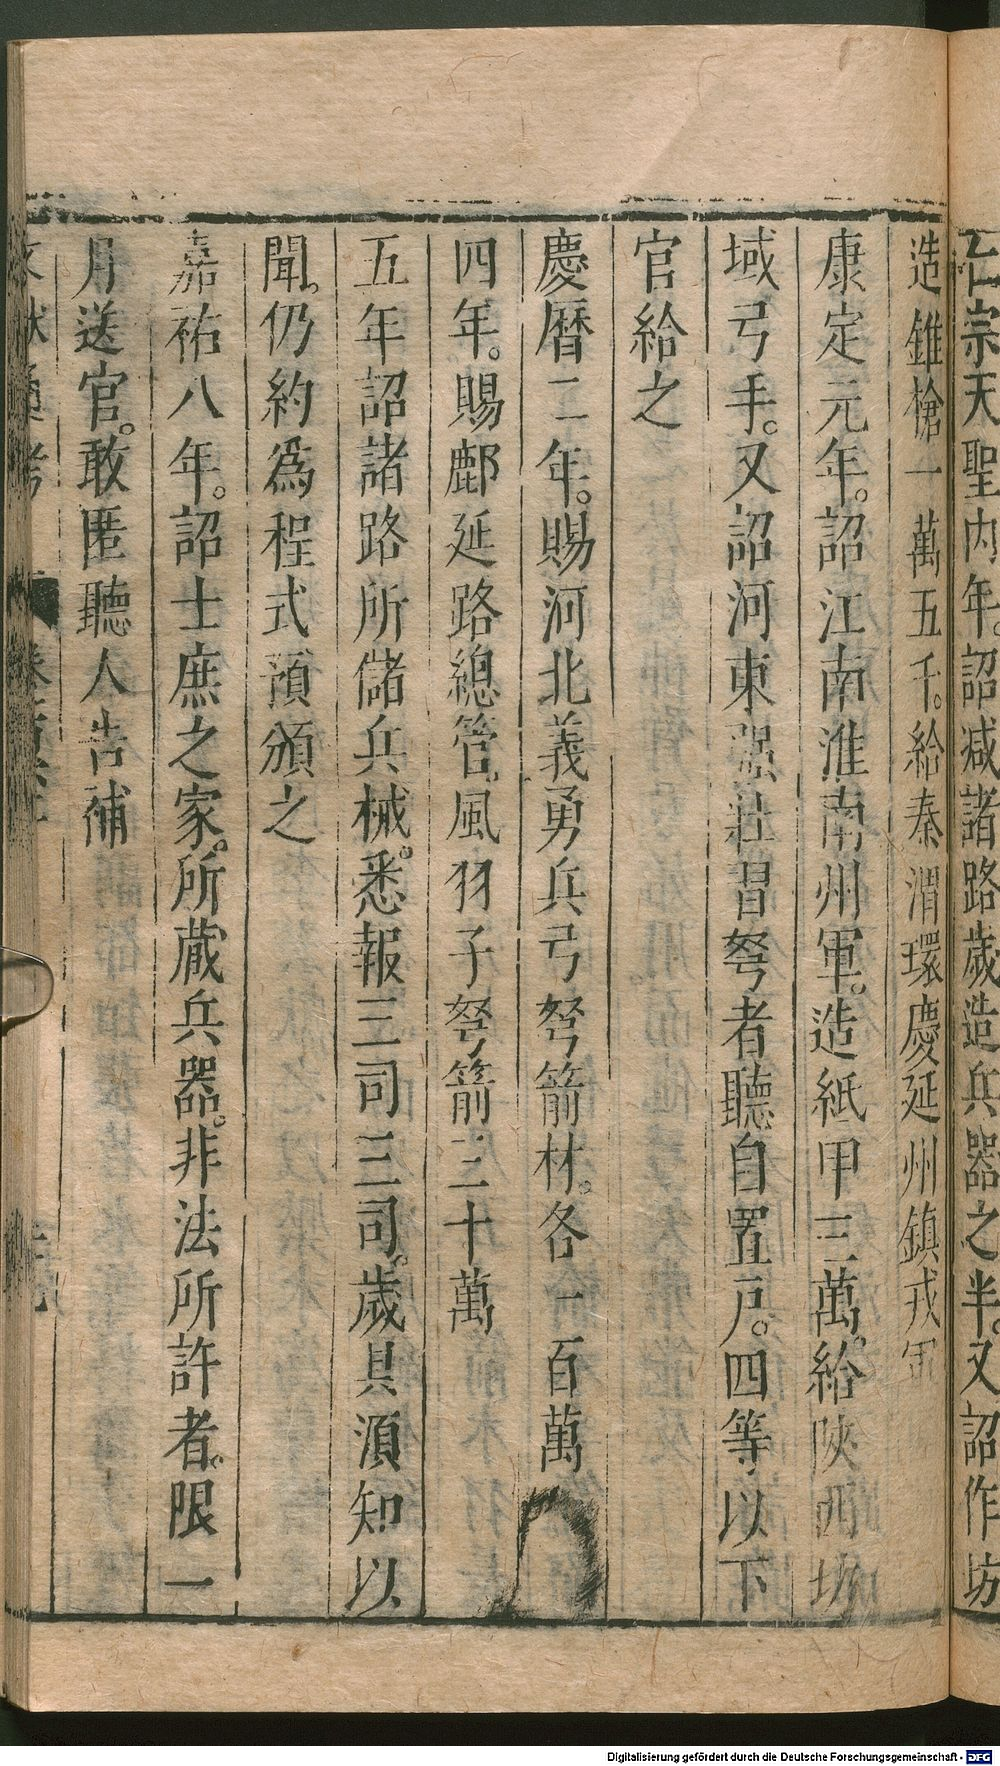 仁宗天聖內年。詔减諸路歲造兵器之半。又詔作坊
造錐槍一萬五千。給秦渭環慶延州鎮戎軍
康定元年。詔江南淮南州軍。造紙甲三萬。給陝西坊
域弓手。又詔河東强壯習弩者聽自置戶。四等以下
官給之
慶曆二年。賜河北義勇兵弓弩箭材。各一百萬
四年。賜鄜延路總管。風羽子弩箭三十萬
五年詔諸路所儲兵械。悉報三司三司。歲具須知以
聞。仍約爲程式預頒之
嘉祐八年。詔士庶之家。所蔵兵器。非法所許者。限一
月送官。敢匿聽人告補
文獻通考
Digitalisierung gefördert durch die Deutsche Forschungsgemeinschaft - DFG